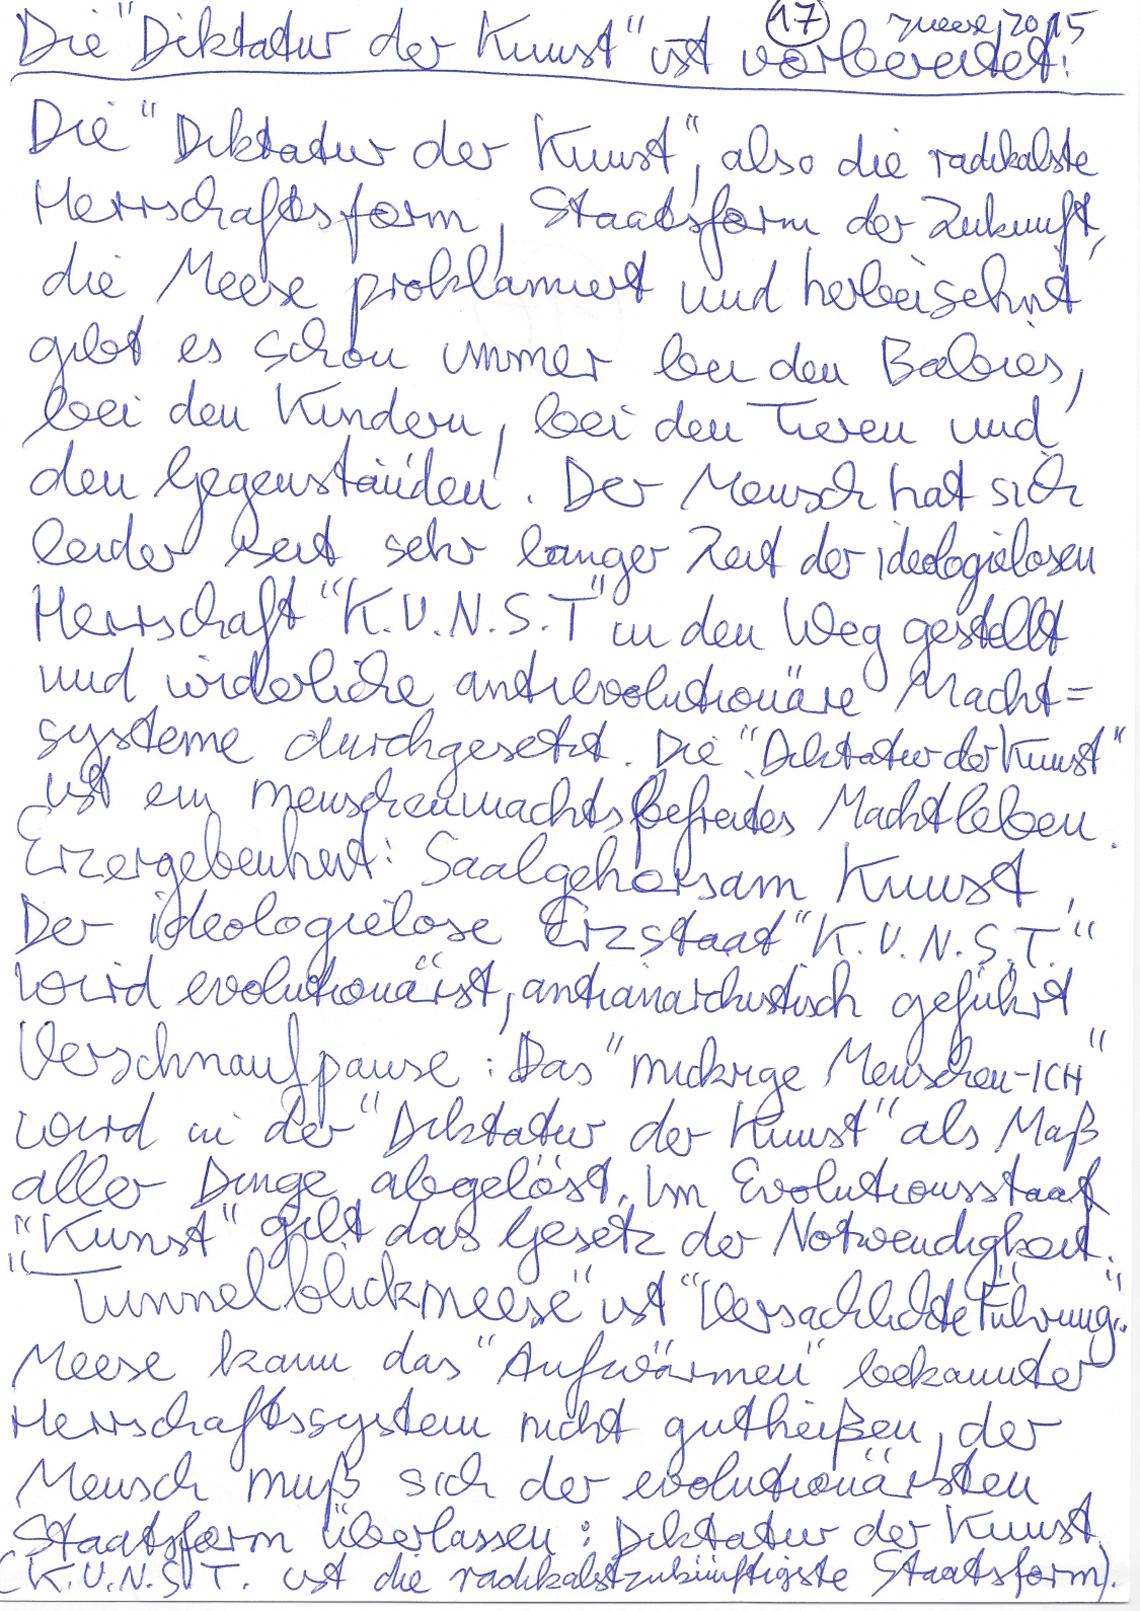 17 Meese, 2015
Die "Diktatur der Kunst" ist vorbereitet:
Die "Diktatur der Kunst", also die radikalste
Herrschaftsform, Staatsform der Zukunft,
die Meese proklamiert und herbeisehnt
gibt es schon immer bei den Babies,
bei den Kindern, bei den Tieren und
den Gegenständen. Der Mensch hat sich
leider seit sehr langer Zeit der ideologielosen
Herrschaft "K.U.N.S.T" in den Weg gestellt
und widerliche antievolutionäre Macht=
systeme durchgesetzt. Die "Diktatur der Kunst"
ist ein menschenmachtsbefreites Machtleben.
Erzergebenheit: Saalgehorsam Kunst,
Der ideologielose Erzstaat "K.U.N.S.T."
wird evolutionärst, antianarchistisch geführt
Verschnaufpause: Das "mickrige Menschen-ICH"
wird in der "Diktatur der Kunst" als Maß
aller Dinge abgelöst. Im Evolutionsstaat
"Kunst" gilt das Gesetz der Notwendigkeit.
"Tunnelblickmeese" ist "Versachlichte Führung".
Meese kann das "Aufwärmen" bekannter
Herrschaftssystem nicht gutheißen, der
Mensch muß sich der evolutionärsten
Staatsform überlassen: Diktatur der Kunst.
(K.U.N.S.T. ist die radikalstzukünftigste Staatsform).